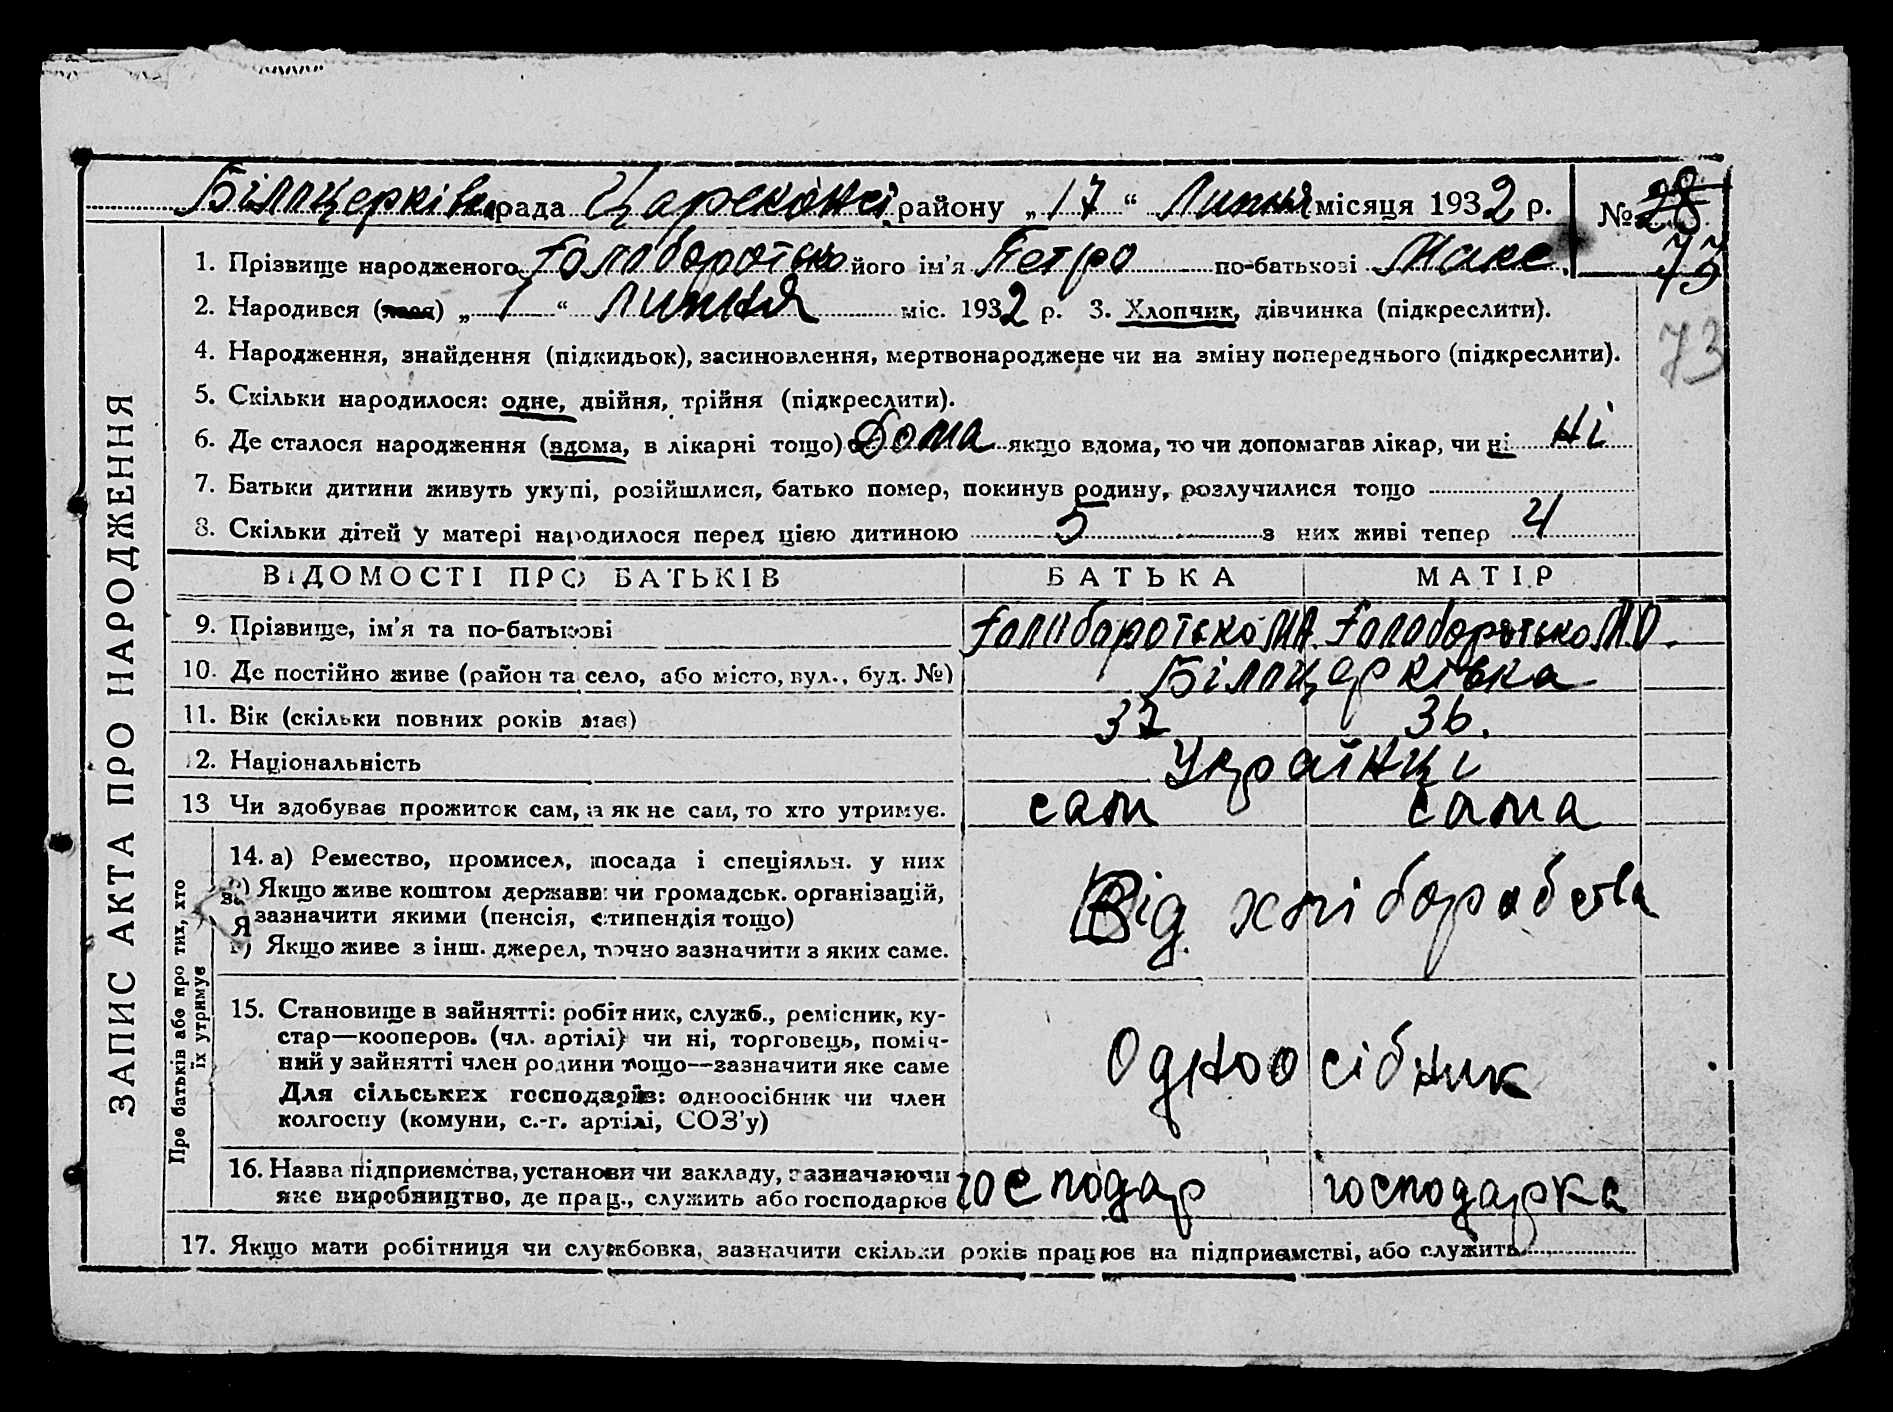 Білицерківка рада Царекансі району „ 17 “ Липня місяця 1932 р. № 28
77
1. Прізвище народженогоГолоборотько його ім'я Петро по-батькові Макс.
73
2. Народився (лася) „ 1 “ Липня міс. 1932 р. 3. Хлопчик, дівчинка (підкреслити).
4. Народження, знайдення (підкидьок), засиновлення, мертвонароджене чи на зміну попереднього (підкреслити).
5. Скільки народилося: одне, двійня, трійня (підкреслити).
6. Де сталося народження (вдома, в лікарні тощо) Дома якщо вдома, то чи допомагав лікар, чи ні Ні
7. Батьки дитини живуть укупі, розійшлися, батько помер, покинув родину, розлучилися тощо
8. Скільки дітей у матері народилося перед цією дитиною 5 з них живі тепер 4
ЗАПИС АКТА ПРО НАРОДЖЕННЯ
ВІДОМОСТІ ПРО БАТЬКІВ БАТЬКА МАТІР
9. Прізвище, ім'я та по-батькові Голоборотько М.А. Голоборотько М.О.
10. Де постійно живе (район та село, або місто, вул., буд. №) Білицерківка
11. Вік (скільки повних років має) 37 36.
12. Національність Українці
13 Чи здобуває прожиток сам, а як не сам, то хто утримує. сам сама
Про батьків або про тих, хто
їх утримує
14. а) Ремество, промисел, посада і спеціяльн. у них
Якщо живе коштом держави чи громадськ. організацій,
зазначити якими (пенсія, стипендія тощо) Від хліборобства
Якщо живе з інш. джерел, точно зазначити з яких саме.
15. Становище в зайнятті: робітник, служб., ремісник, ку-
стар—кооперов. (чл. артілі) чи ні, торговець, поміч-
ний у зайнятті член родини тощо—зазначити яке саме Одноосібник
Для сільських господарів: одноосібник чи член
колгоспу (комуни, с.-г. артілі, СОЗ'у)
16. Назва підприємства, установи чи закладу, зазначаючи
яке виробництво, де прац., служить або господарює господар господарка
17. Якщо мати робітниця чи службовка, зазначити скільки років працює на підприємстві, або служить